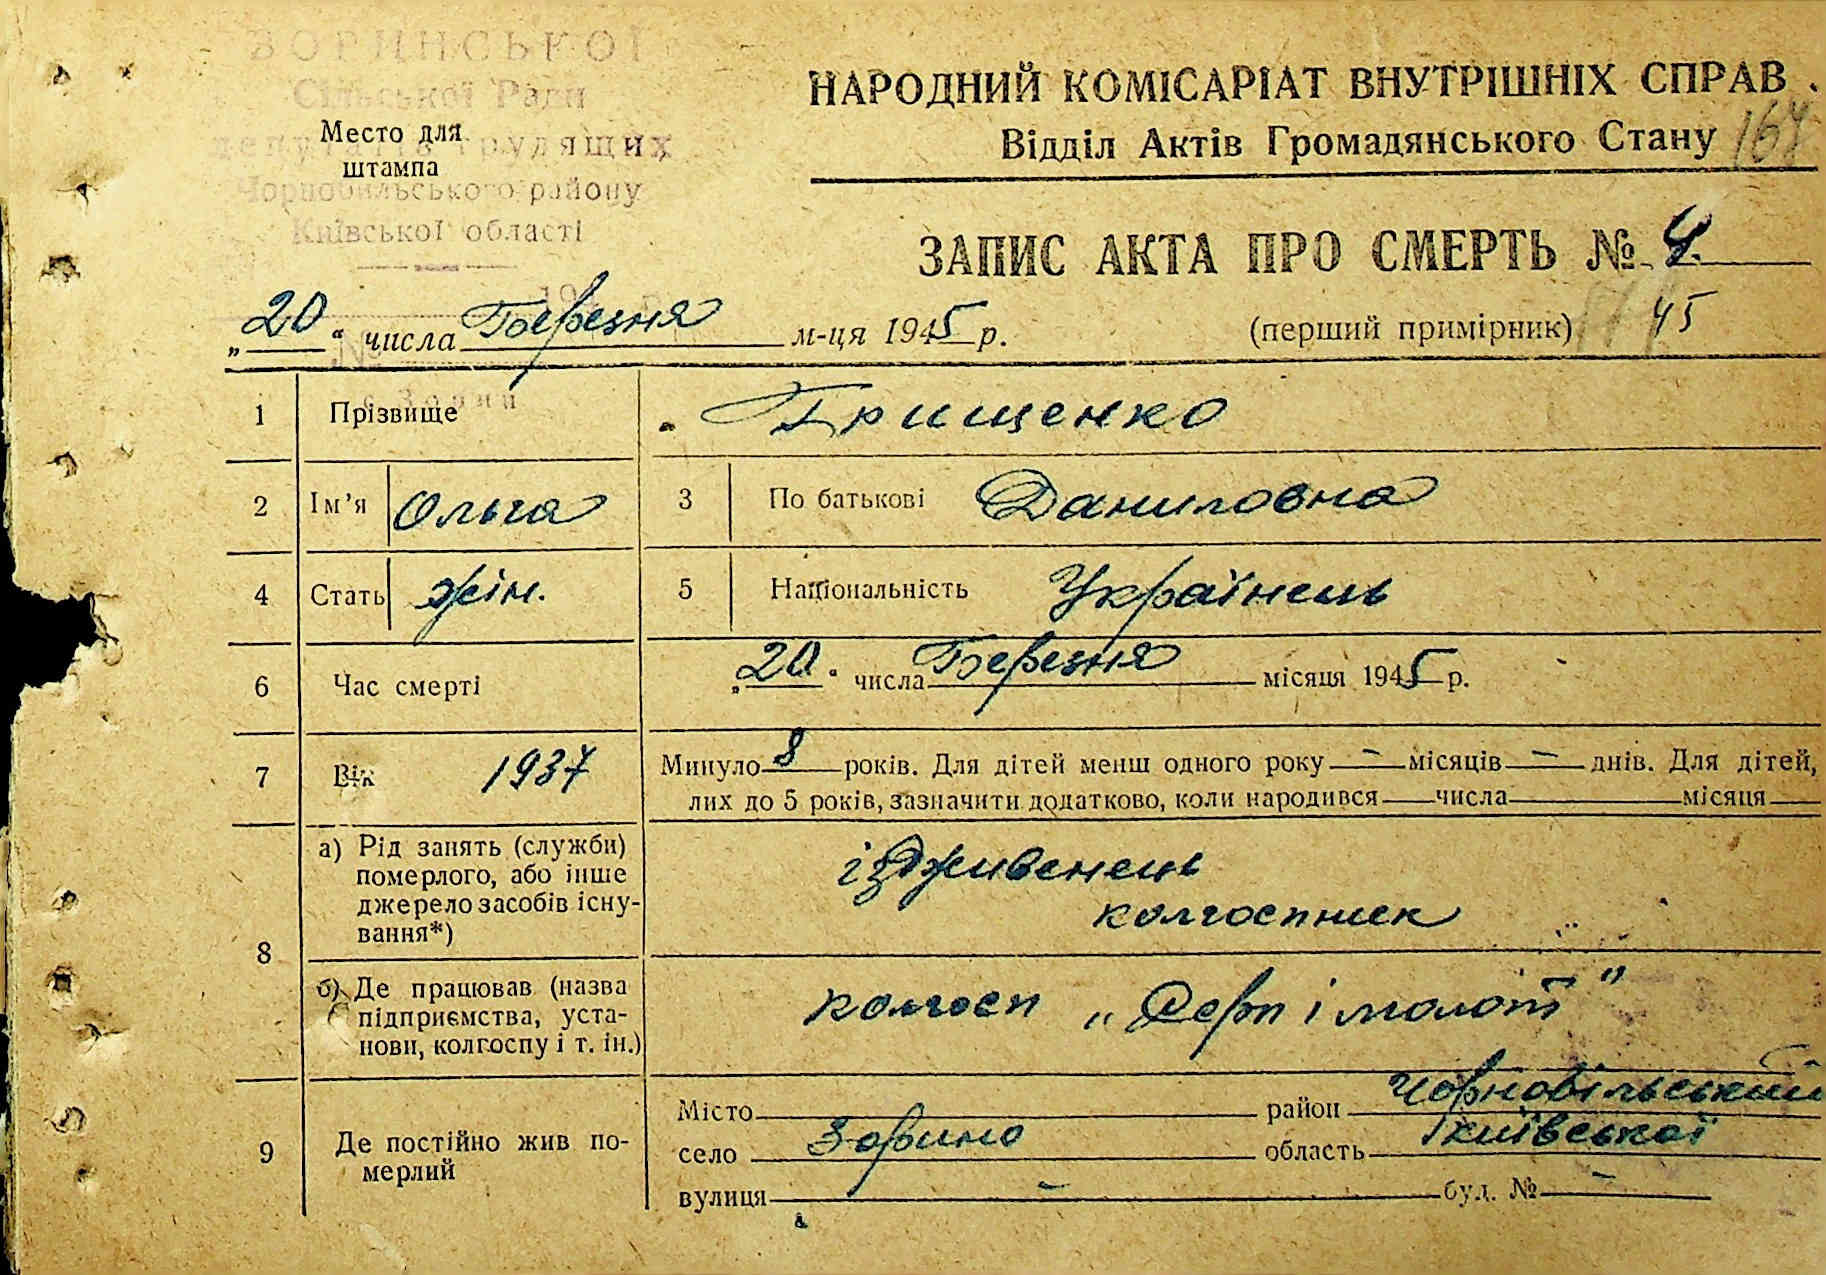 ЗОРИНСЬКОЇ
Сільської Ради
депутатів трудящих
Чорнобильського району
Київської області
Место для
штампа
НАРОДНИЙ КОМІСАРІАТ ВНУТРІШНІХ СПРАВ
Відділ Актів Громадянського Стану 164
ЗАПИС АКТА ПРО СМЕРТЬ № 4.
„20“ числа Березня м-ця 1945 р.
(перший примірник) 45
с. Зорин
1 Прізвище Грищенко
2 Ім'я Ольга 3 По батькові Даниловна
4 Стать жін. 5 Національність Українець
6 Час смерті „20“ числа Березня місяця 1945 р.
7 Вік 1937 Минуло 8 років. Для дітей менш одного року — місяців — днів. Для дітей,
лих до 5 років, зазначити додатково, коли народився числа місяця
8 а) Рід занять (служби)
померлого, або інше
джерело засобів існу-
вання*)
іздживенець
колгоспник
б) Де працював (назва
підприємства, уста-
нови, колгоспу і т. ін.)
колгосп „Серп і молот"
9 Де постійно жив по-
мерлий
Місто район Чорнобільський
село Зорино область Київської
вулиця — буд. № —